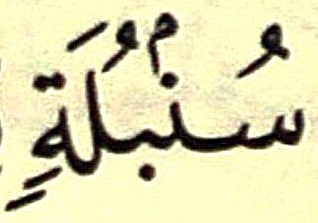 سُنۢبُلَةٍ